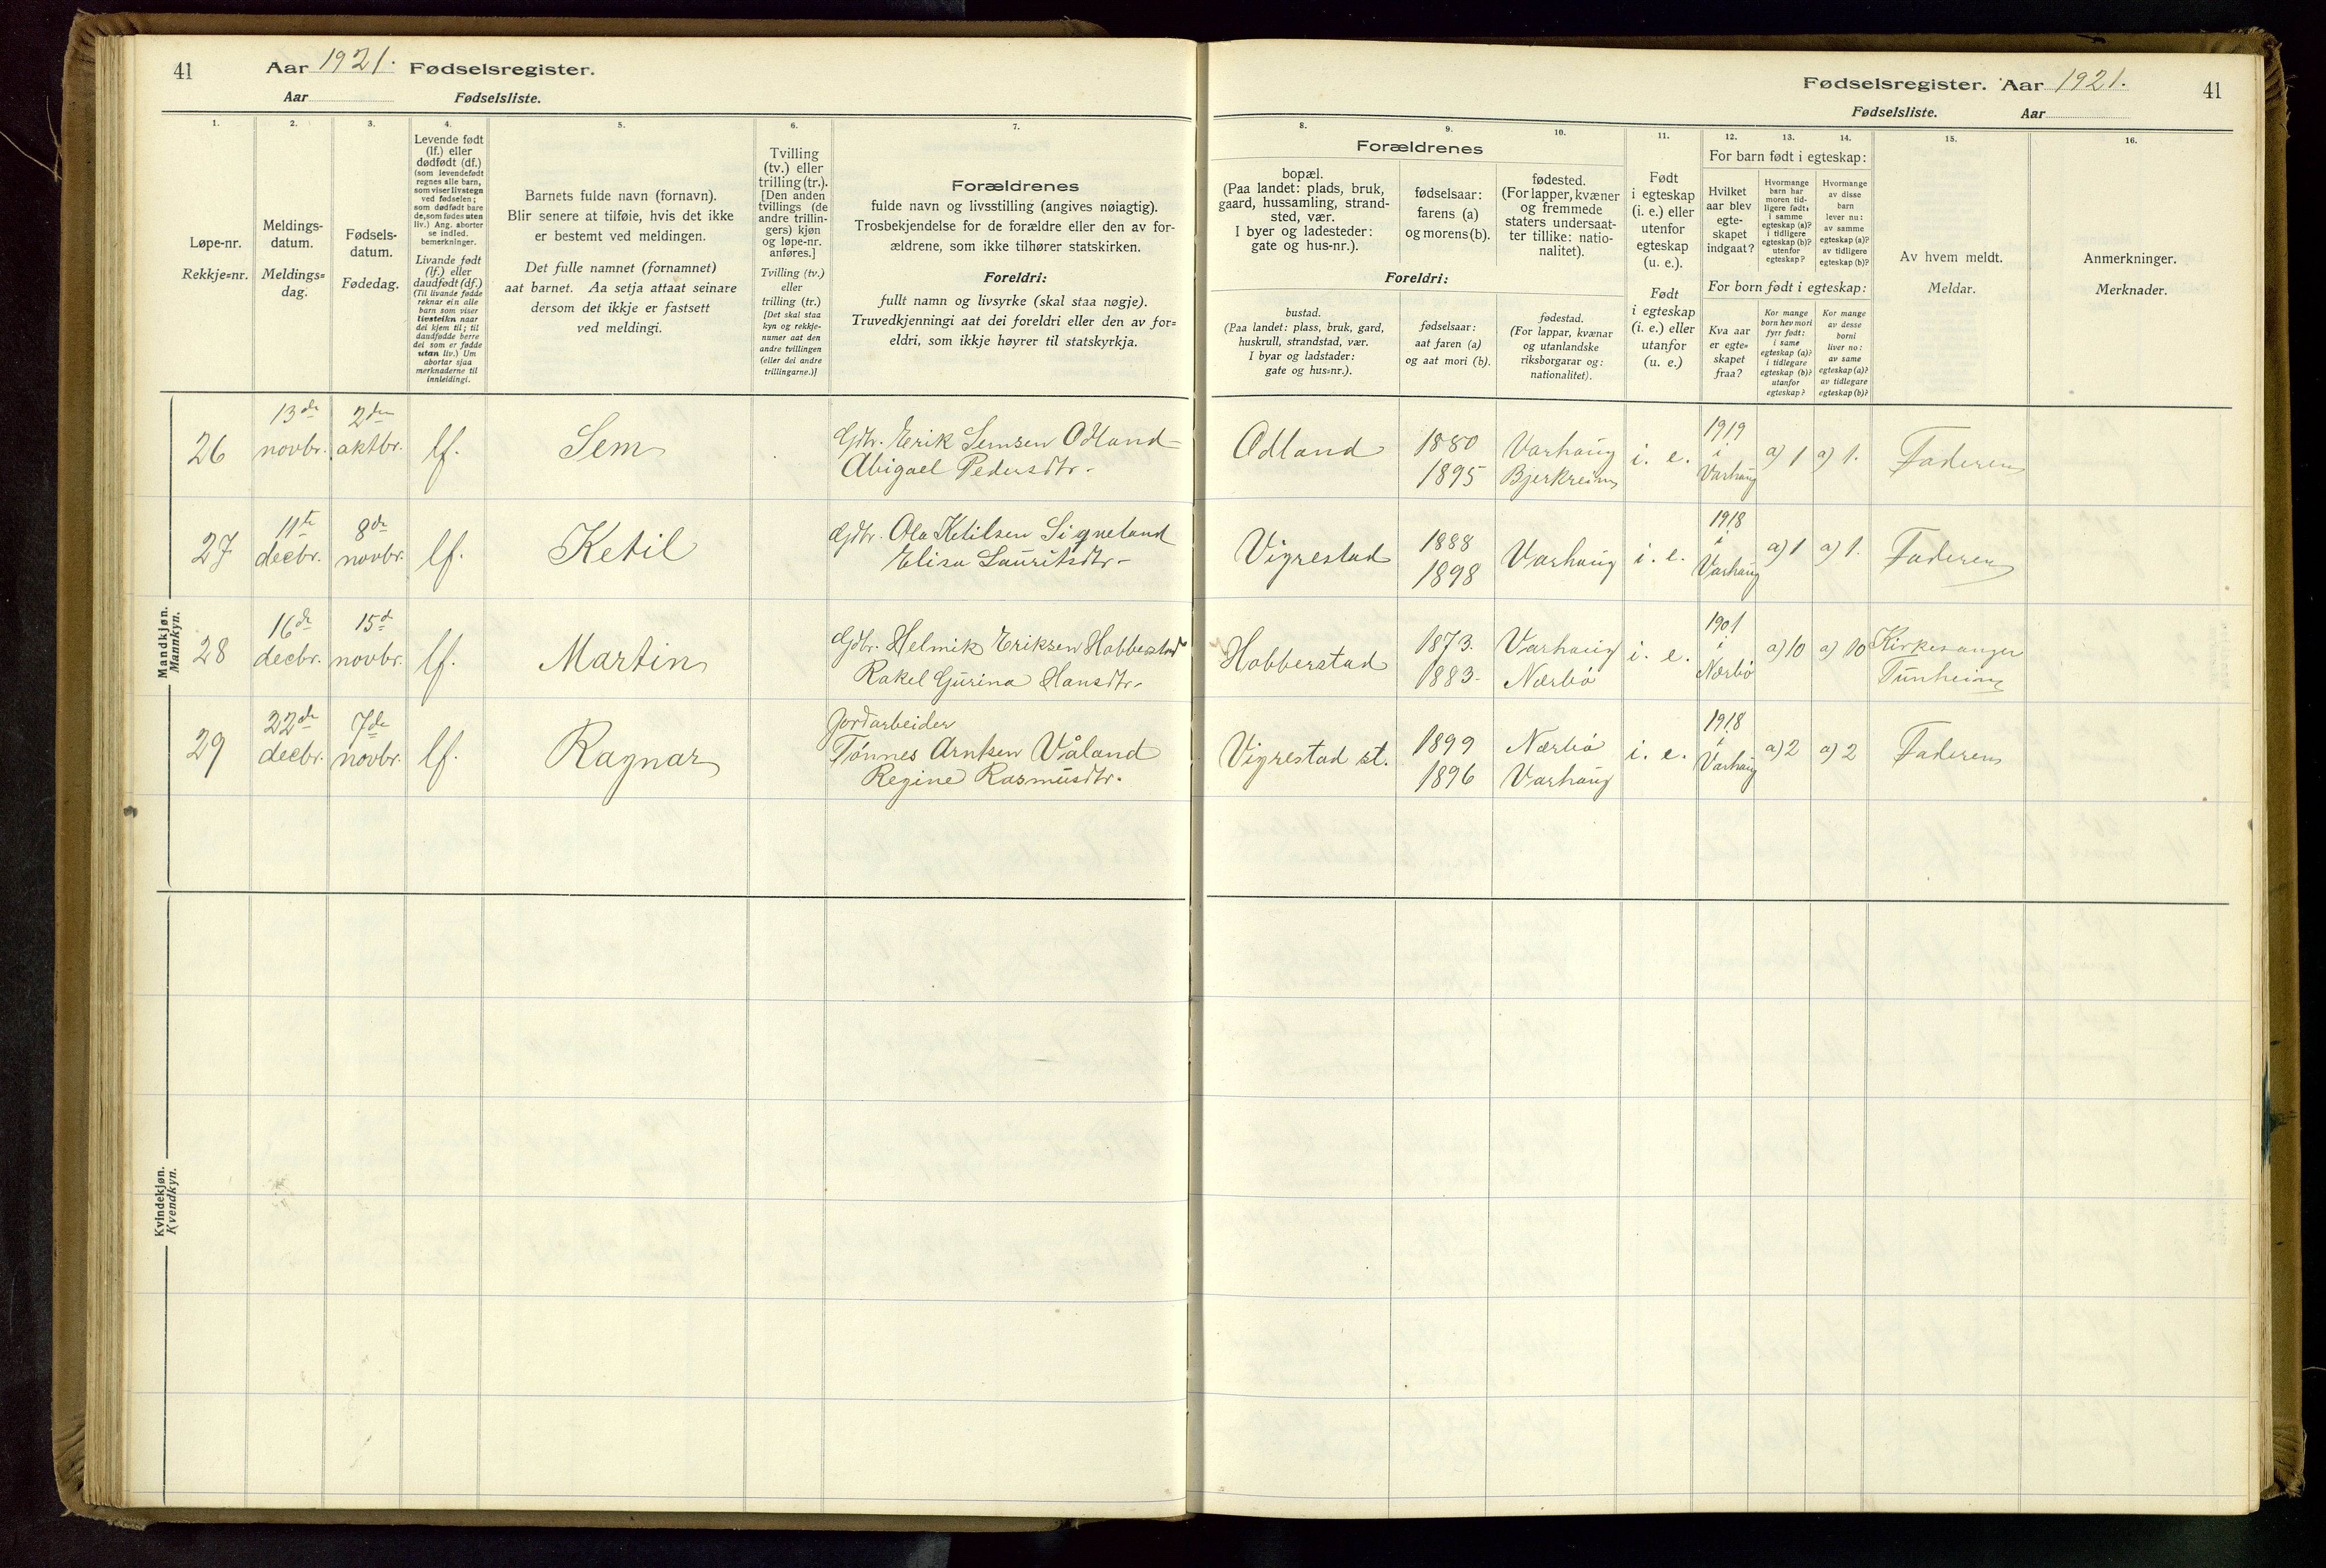 41
Aar 1921. Fødselsregister.
Aar Fødselsliste.
1.
2.
3.
4.
5.
6.
7.
Løpe-nr.
Rekkje=nr.
Meldings-
datum.
Meldings=
dag.
Fødsels-
datum.
Fødedag.
Levende født
(lf.) eller
dødfødt (df.)
(som levendefødt
regnes alle barn,
som viser livstegn
ved fødselen;
som dødfødt bare
de, som fødes uten
liv.) Ang. aborter
se indled.
bemerkninger.
Livande født
(lf.) eller
daudfødt (df.)
(Til livande fødde
reknar ein alle
barn som viser
livsteikn naar
dei kjem til; til
daudfødde berre
dei som er fødde
utan liv.) Um
abortar sjaa
merknaderne til
innleidingi.
Barnets fulde navn (fornavn).
Blir senere at tilføie, hvis det ikke
er bestemt ved meldingen.
Det fulle namnet (fornamnet)
aat barnet. Aa setja attaat seinare
dersom det ikkje er fastsett
ved meldingi.
Tvilling
(tv.) eller
trilling (tr.).
[Den anden
tvillings (de
andre trillin-
gers) kjøn
og løpe-nr.
anføres.]
Tvilling (tv.)
eller
trilling (tr.)
[Det skal staa
kyn og rekkje-
numer aat den
andre tvillingen
(eller dei andre
trillingarne.)]
Forældrenes
fulde navn og livsstilling (angives nøiagtig).
Trosbekjendelse for de forældre eller den av for-
ældrene, som ikke tilhører statskirken.
Foreldri:
fullt namn og livsyrke (skal staa nøgje).
Truvedkjenningi aat dei foreldri eller den av for=
eldri, som ikkje høyrer til statskyrkja.
Mandkjøn.
Mannkyn.
26 13de novbr. 2den oktbr. lf. Sem Gdbr. Erik Semsen Odland
Abigael Pedersdtr.
27 11te decbr. 8de novbr. lf. Ketil Gdbr. Ola Ketilsen Signeland
Elisa Lauritsdtr.
28 16de decbr. 15de novbr. lf. Martin Gdbr. Helmik Eriksen Hobberstad
Rakel Gurina Hansdtr.
29 22de decbr. 7de novbr. lf. Ragnar Jordarbeider
Tønnes Arntsen Våland
Regine Rasmusdtr.
Kvindekjøn.
Kvendkyn.
Fødselsregister. Aar 1921.
41
Fødselsliste. Aar
8.
9.
10.
11.
12.
13.
14.
15.
16.
Forældrenes
bopæl.
(Paa landet: plads, bruk,
gaard, hussamling, strand-
sted, vær.
I byer og ladesteder:
gate og hus-nr.).
fødselsaar:
farens (a)
og morens (b).
fødested.
(For lapper, kvæner
og fremmede
staters undersaat-
ter tillike: natio-
nalitet).
Foreldri:
bustad.
(Paa landet: plass, bruk, gard,
huskrull, strandstad, vær.
I byar og ladstader:
gate og hus=nr.).
fødselsaar:
aat faren (a)
og aat mori (b).
fødestad.
(For lappar, kvænar
og utanlandske
riksborgarar og:
nationalitet).
Født
i egteskap
(i. e.) eller
utenfor
egteskap
(u. e.).
Født
i egteskap
(i. e.) eller
utanfor
(u. e.)
For barn født i egteskap:
Hvilket
aar blev
egte-
skapet
indgaat?
Hvormange
barn har
moren tid-
ligere født:
i samme
egteskap (a)?
i tidligere
egteskap (b)?
utenfor
egteskap?
Hvormange
av disse
barn
lever nu:
av samme
egteskap (a)?
av tidligere
egteskap (b)?
For born født i egteskap:
Kva aar
er egte=
skapet
fraa?
Kor mange
born hev mori
fyrr født:
i same
egteskap (a)?
i tidlegare
egteskap (b)?
utanfor
egteskap?
Kor mange
av desse
borni
liver no:
av same
egteskap (a)?
av tidlegare
egteskap (b)?
Av hvem meldt.
Meldar.
Anmerkninger.
Merknader.
Odland 1880 Varhaug i. e. 1919 i Varhaug a) 1 a) 1. Faderen
1895 Bjerkreim
Vigrestad 1888 Varhaug i. e. 1918 i Varhaug a) 1 a) 1. Faderen
1898
Hobberstad 1873. Varhaug i. e. 1901 i Nærbø a) 10 a) 10 Kirkesanger
1883. Nærbø Tunheim
Vigrestad st. 1899 Nærbø i. e. 1918 i Varhaug a) 2 a) 2 Faderen
1896 Varhaug